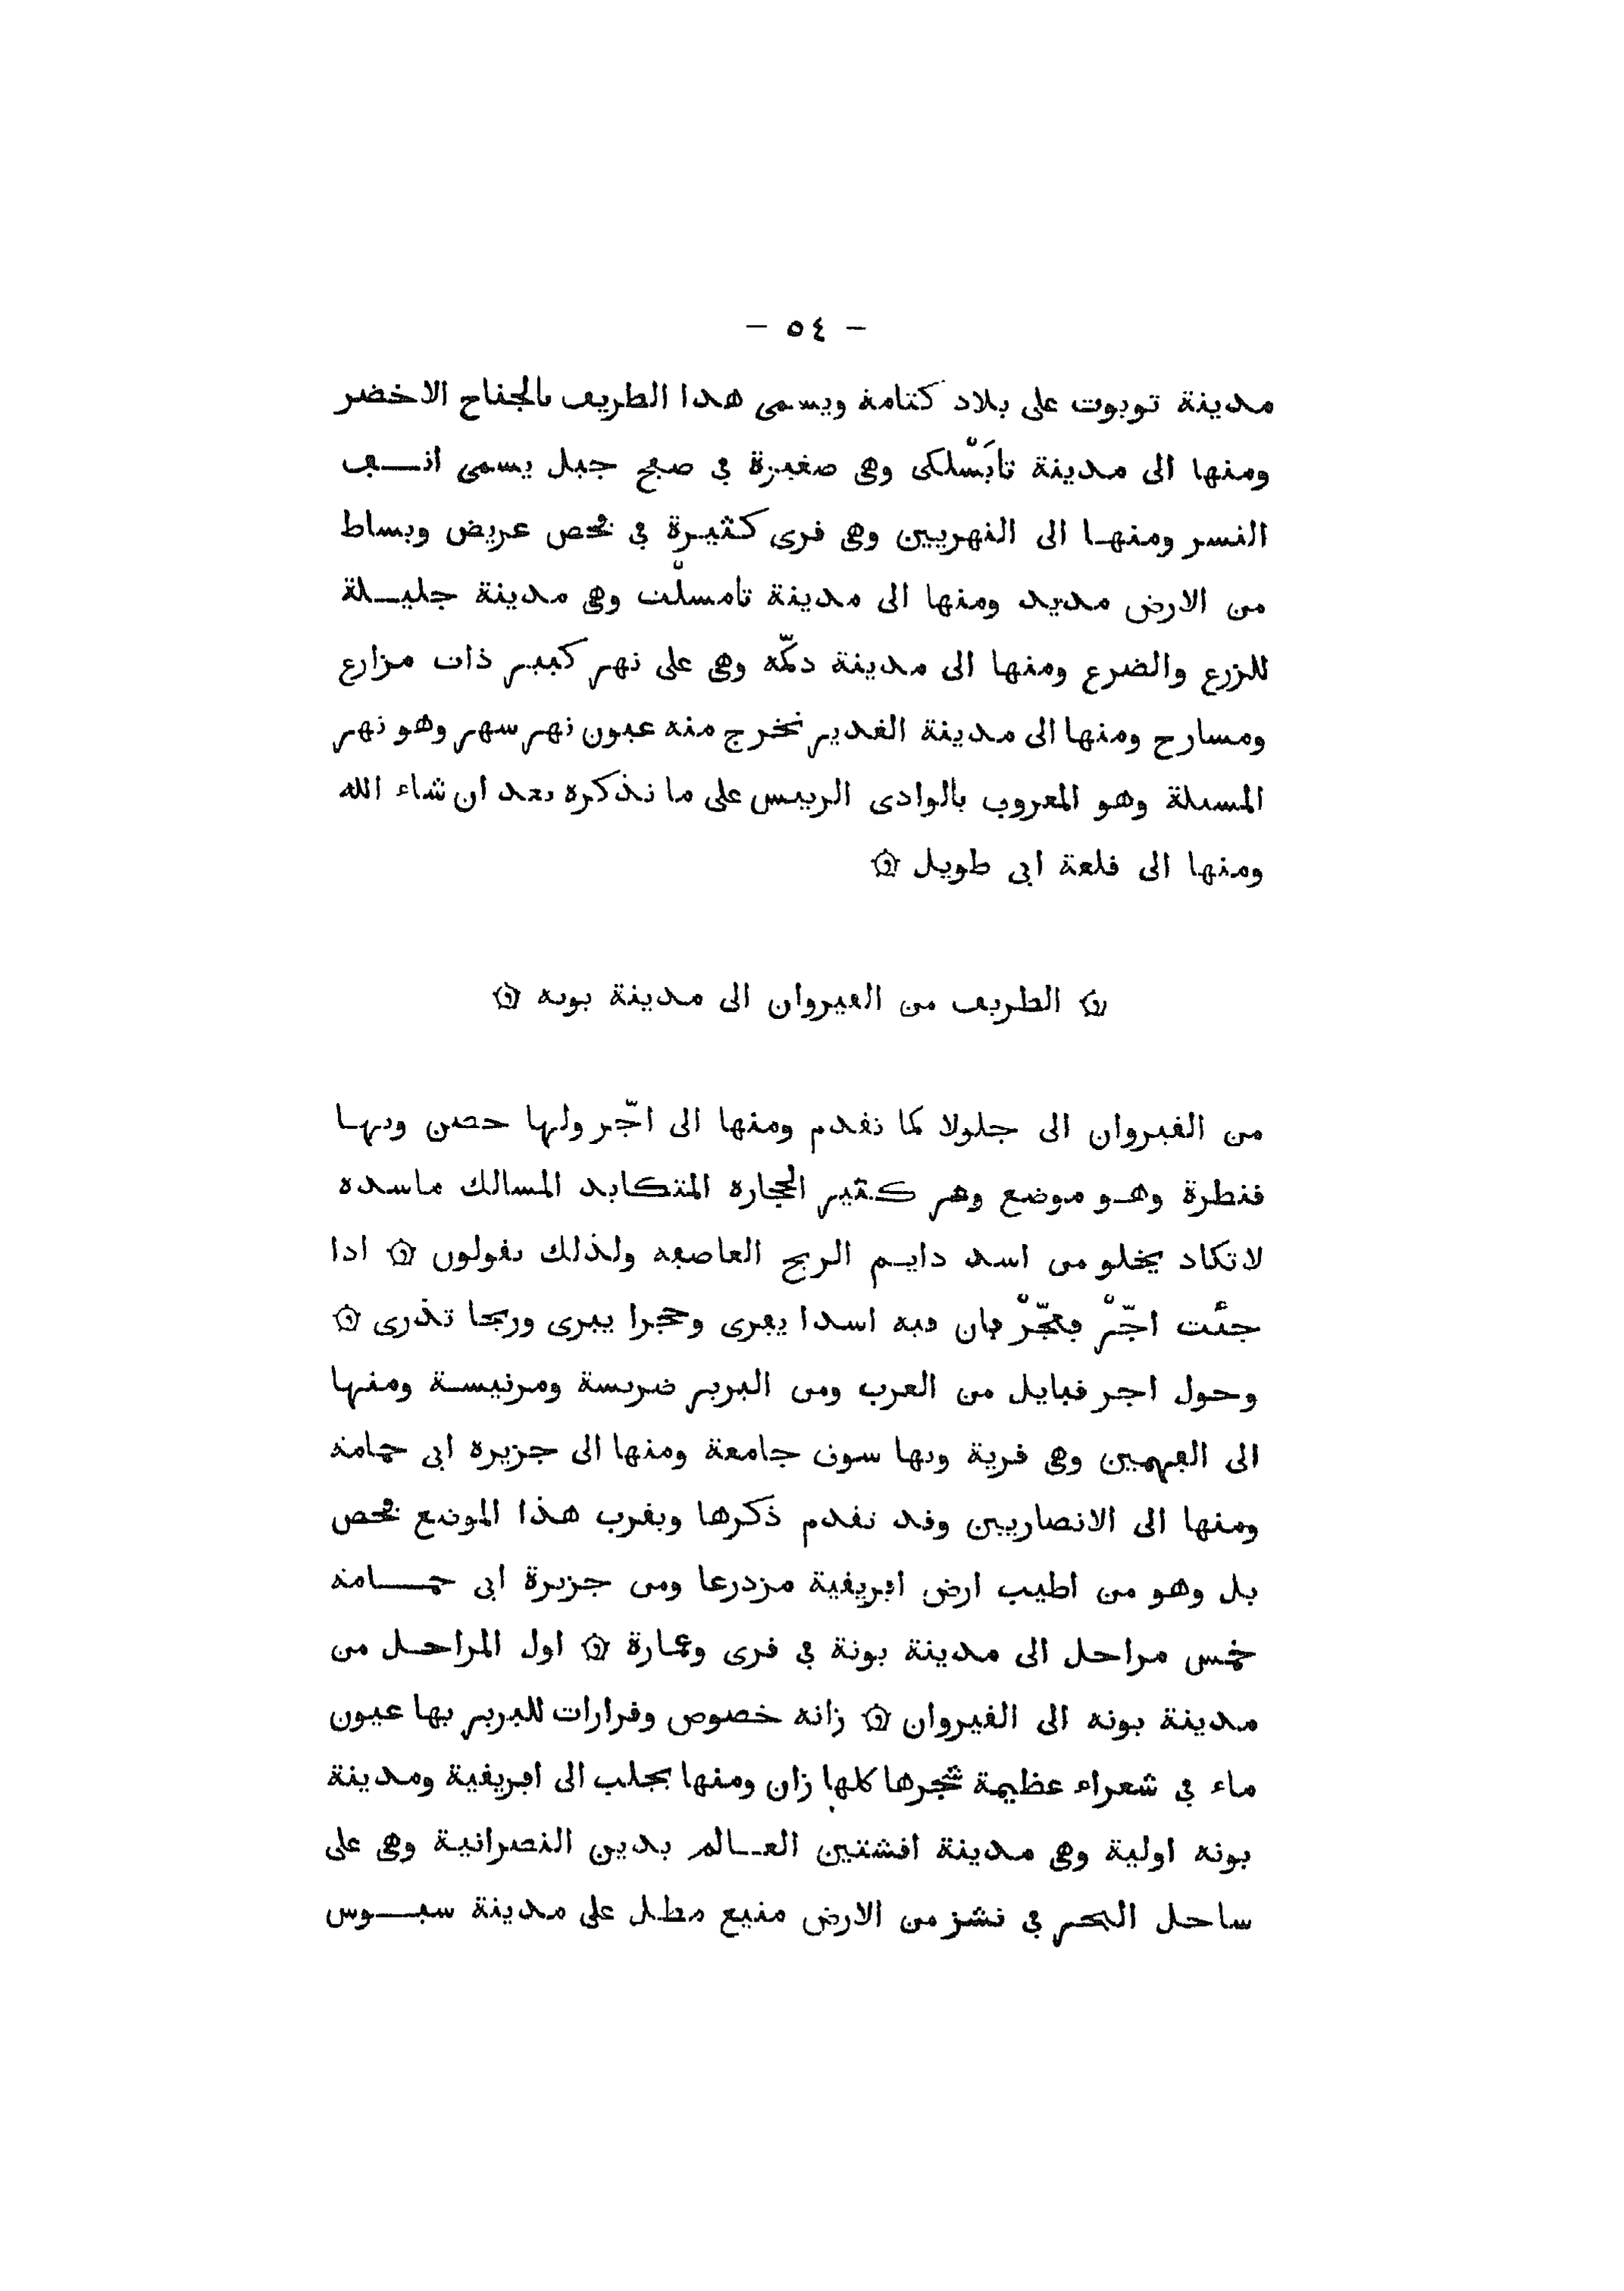 - ٥٤ -
مدينة توبوت على بلاد كتامة ويسمى هذا الطريق بالجناح الاخضر
ومنها الى مدينة تابَسْلكى وهى صغيرة في صفح جبل يسمى انــف
النسر ومنهـا الى النهريين وهى قرى كثيـرة في فحص عريض وبساط
من الارض مديد ومنها الى مدينة تامسلّت وهى مدينة جليــلة
للزرع والضرع ومنها الى مدينة دكّمه وهى على نهر كبير ذات مزارع
ومسارح ومنها الى مدينة الغدير تخرج منه عيون نهر سهر وهو نهر
المسيلة وهو المعروف بالوادى الرييس على ما نذكره بعد ان شاء الله
ومنها الى قلعة ابى طويل ۞
۞ الطريق من القيروان الى مدينة بونه ۞
من القيروان الى جلولا كما تقدم ومنها الى اجّر ولها حصن وبهـا
قنطرة وهـو موضع وعر كثير الحجاره المتكابد المسالك ماسده
لا تكاد يخلو من اسد دايـم الريح العاصفه ولذلك يقولون ۞ اذا
جئت اجّرْ فعجّرْ فان فيه اسدا يفرى وحجرا يبرى وريحا تذرى ۞
وحول اجر قبايل من العرب ومن البربر ضريسة ومرنيسـة ومنها
الى الفهميين وهى قرية وبها سوق جامعة ومنها الى جزيره ابى حمامه
ومنها الى الانصاريين وقد تقدم ذكرها وبقرب هذا الموضع فحص
بل وهو من اطيب ارض افريقية مزدرعا ومن جزيرة ابى حمــامه
خمس مراحل الى مدينة بونة في قرى وعمارة ۞ اول المراحـل من
مدينة بونه الى القيروان ۞ زانه خصوص وقرارات للبربر بها عيون
ماء في شعراء عظيمة شجرها كلها زان ومنها يجلب الى افريقية ومدينة
بونه اولية وهى مدينة اقشتين العــالم بدين النصرانيـة وهى على
ساحل البحر في نشز من الارض منيع مطـل على مدينة سبــوس